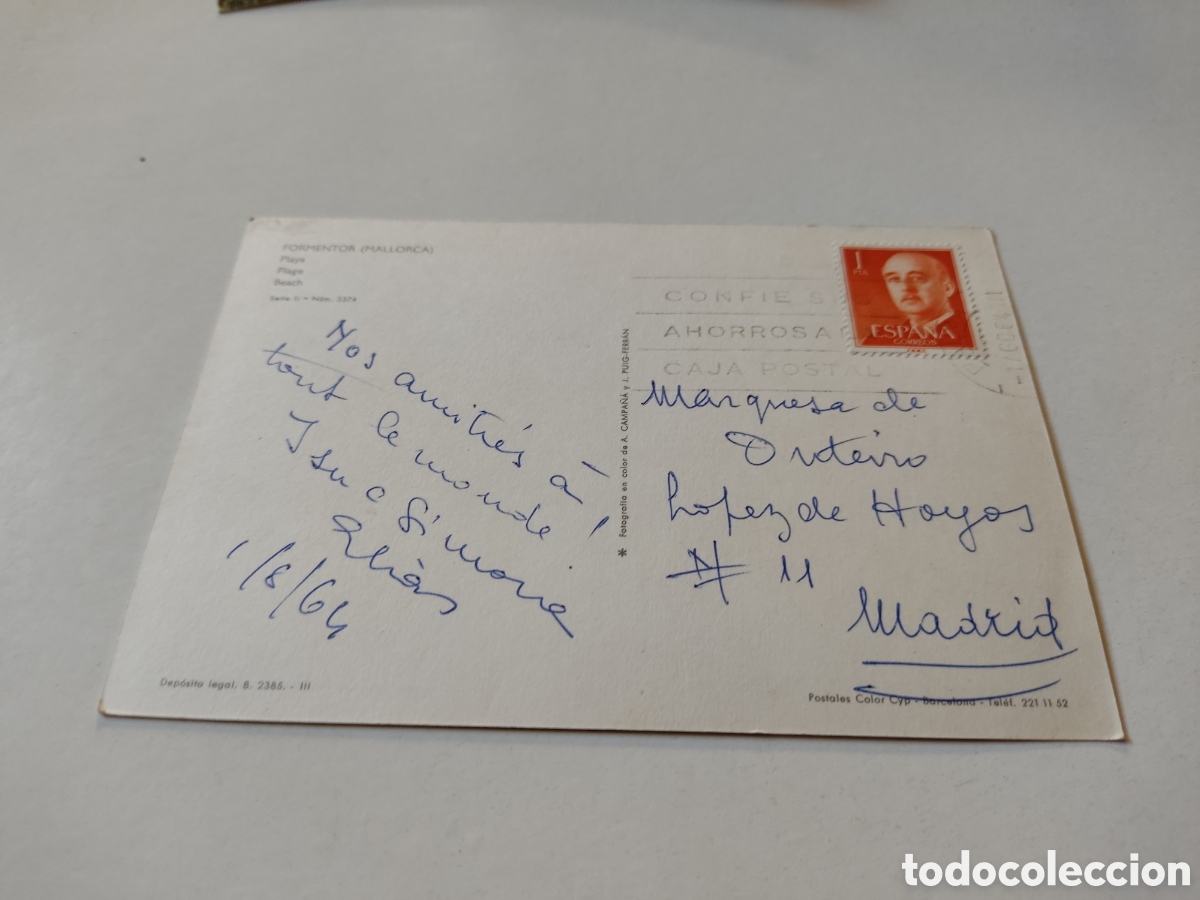 FORMENTOR (MALLORCA)
Playa
Plage
Beach
Serie II - Núm. 3374
Nos amitiés à
tout le monde !
Simone
1/8/64
Depósito legal. B. 2385. - III
* Fotografía en color de A. CAMPAÑÀ y J. PUIG-FERRAN
CONFIE S
AHORROS A
CAJA POSTAL
1
PTA
ESPAÑA
CORREOS
Marquesa de
Lopez de Hoyos
Nº 11
Madrid
Postales Color Cyp - Barcelona - Teléf. 221 11 52
todocoleccion